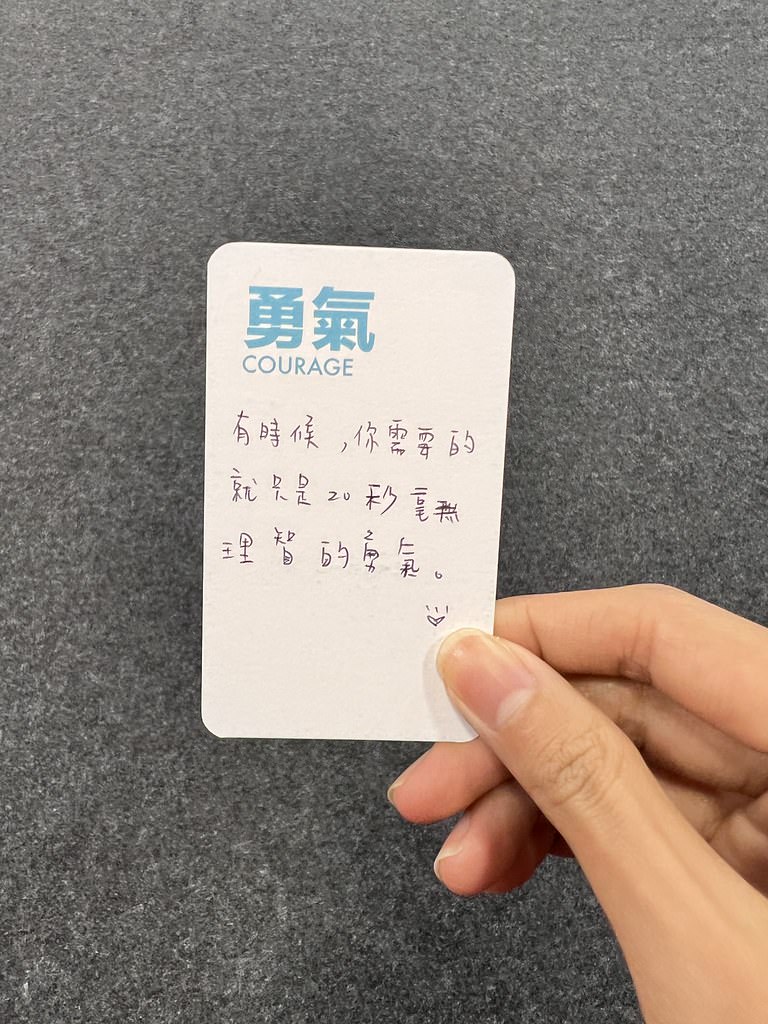 勇氣
COURAGE
有時候,你需要的
就只是20秒毫無
理智的勇氣。